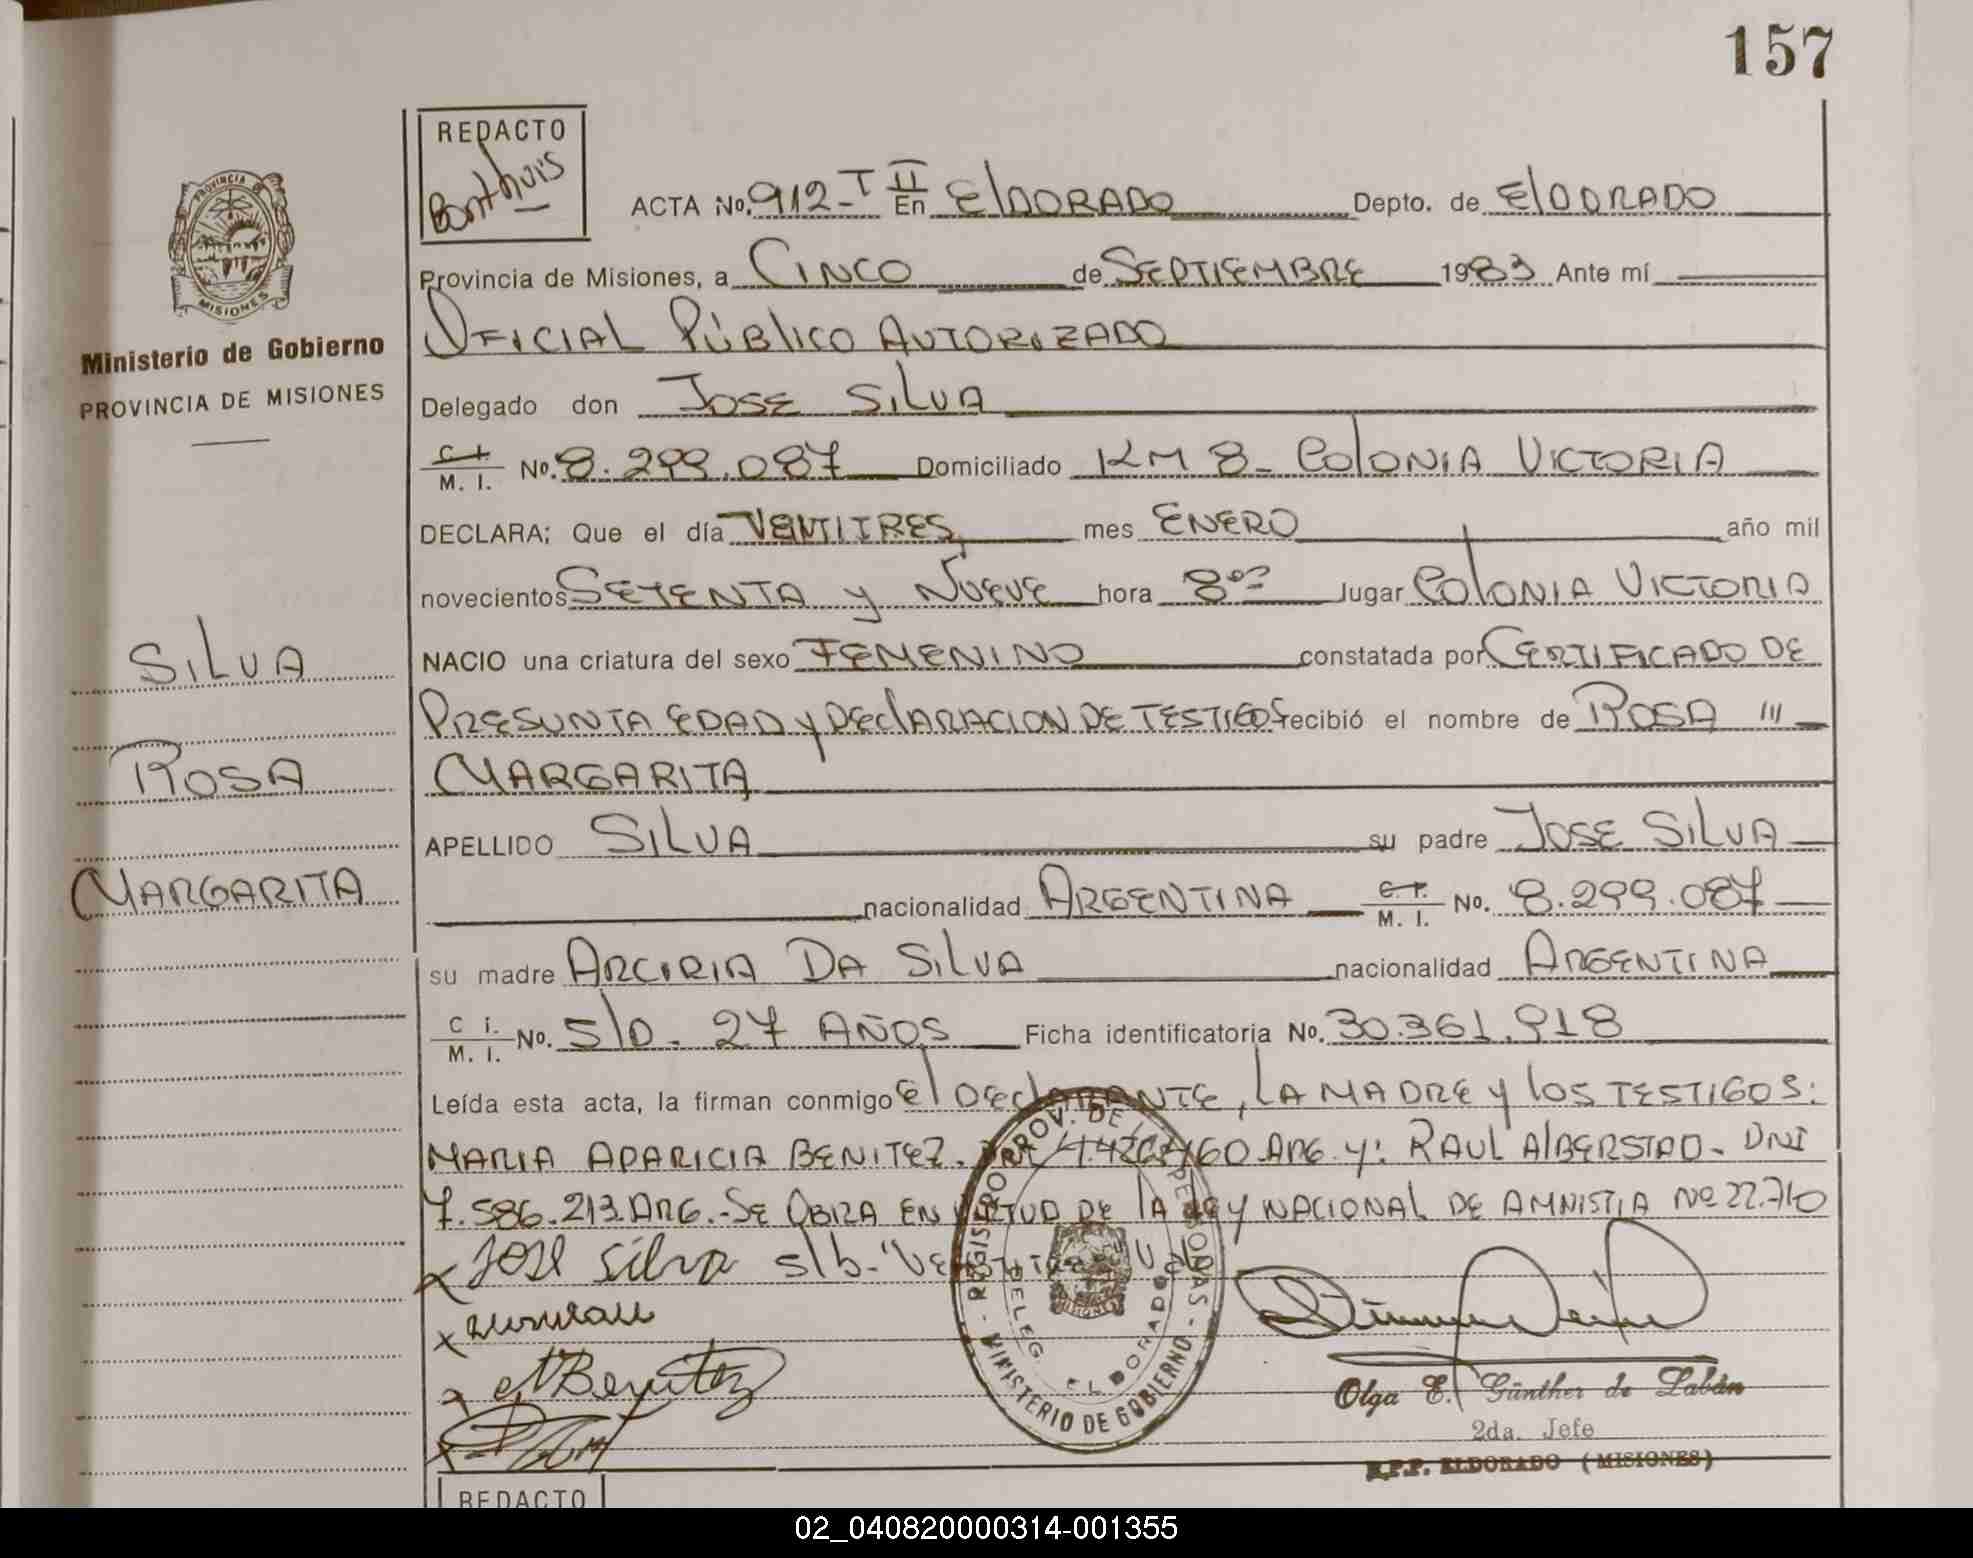 157
REDACTO
Bonthuis
PROVINCIA DE
MISIONES
Ministerio de Gobierno
PROVINCIA DE MISIONES
ACTA No. 912-T II En ElDORADO Depto. de ElDORADO
Provincia de Misiones, a CINCO de SEPTIEMBRE 1983 Ante mí
OFICIAL PÚBLICO AUTORIZADO
Delegado don JOSE SILVA
C. I. M. I. No. 8.299.087 Domiciliado KM 8- COLONIA VICTORIA
DECLARA; Que el día VEINTITRES mes ENERO año mil
novecientos SETENTA y NUEVE hora 8 lugar COLONIA VICTORIA
NACIO una criatura del sexo FEMENINO constatada por CERTIFICADO DE
PRESUNTA EDAD y DEClARACION DE TESTIGOS recibió el nombre de ROSA
MARGARITA
APELLIDO SILVA su padre JOSE SILVA
nacionalidad ARGENTINA C. I. M. I. No. 8.299.087
su madre ARCIRIA DA SILVA nacionalidad ARGENTINA
C I. M. I. No. S/D. 27 AÑOS Ficha identificatoria No. 30.361.918
Leída esta acta, la firman conmigo El DEClARANTE, LA MADRE y lOS TESTIGOS:
MARIA APARICIA BENITEZ. ARG. y: RAUL AlBERSTAD- DNI
7.586.213.ARG.-SE OBRA EN VIRTUD DE lA lEY NACIONAL DE AMNISTIA No 22.710
x JOSE Silva s/b-
x
x Benitez
x
SILVA
ROSA
MARGARITA
REGISTRO PROV. DE LAS PERSONAS - MINISTERIO DE GOBIERNO -
DELEG. ELDORADO
Olga E. Günther de Labán
2da. Jefe
R.P.P. ELDORADO (MISIONES)
REDACTO
02_040820000314-001355